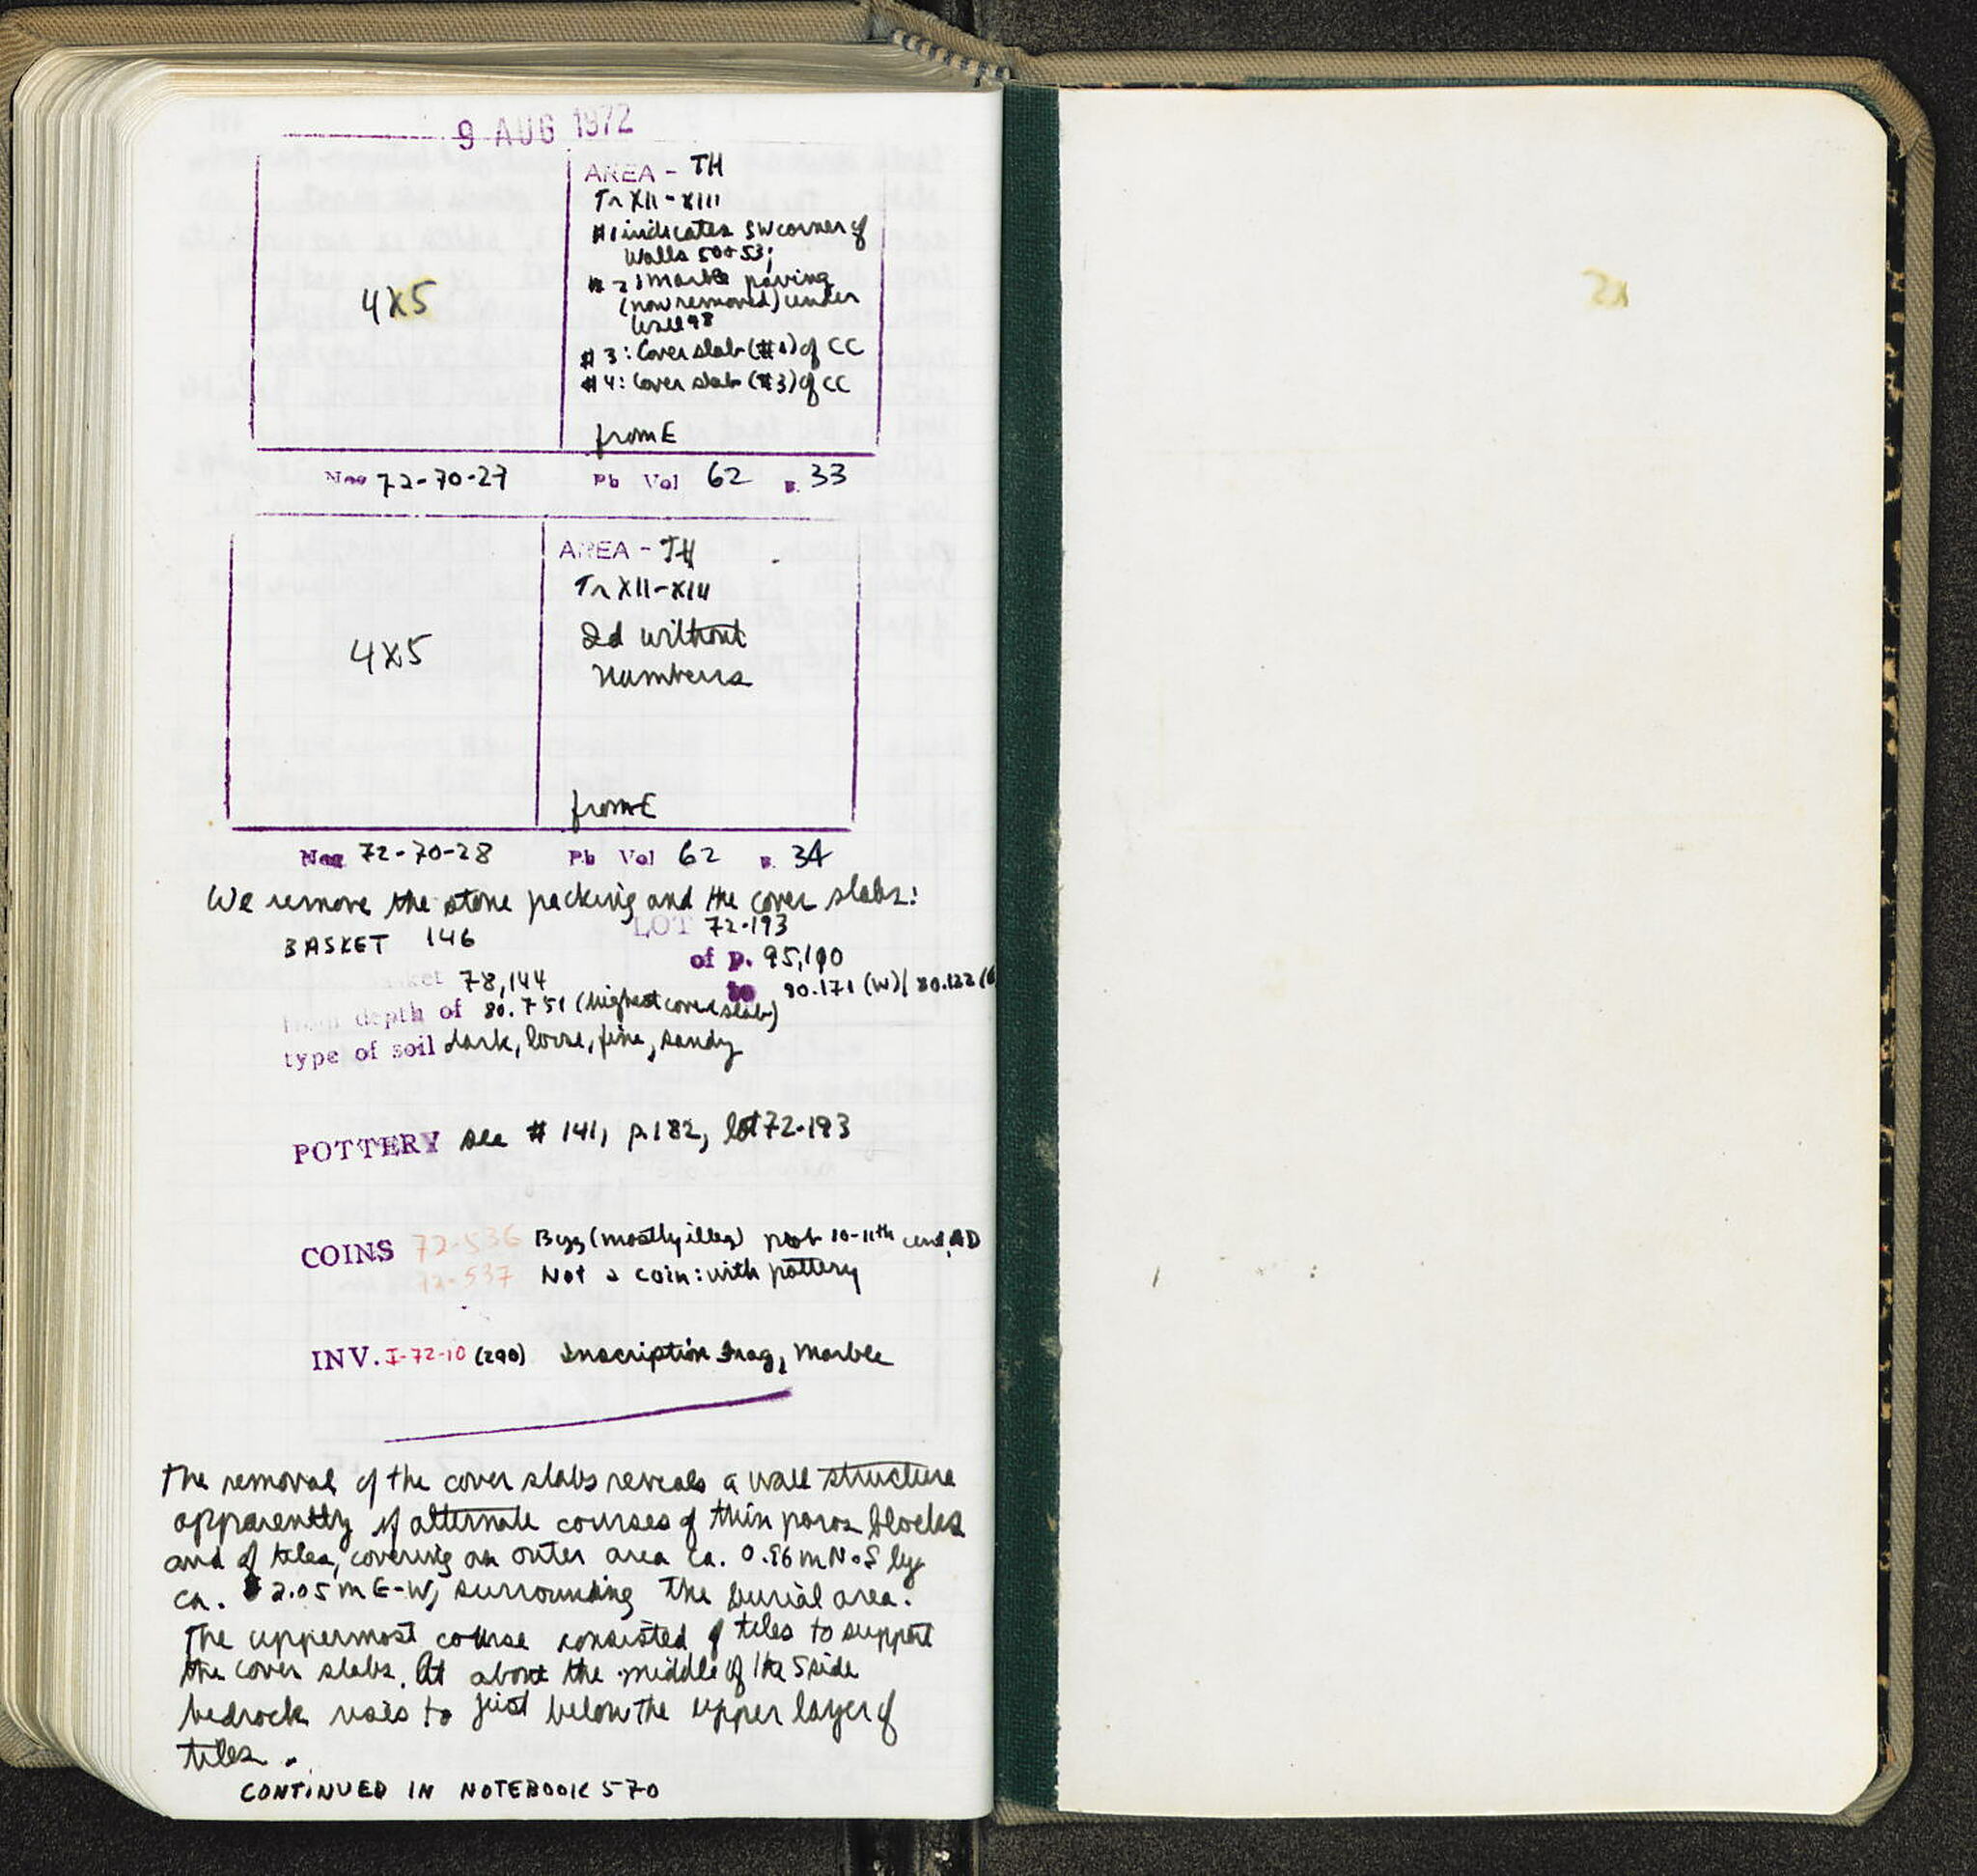 9 AUG 1972
AREA - TH
Tr XII-XIII
#1 indicates SW corner of
Walls 50+53;
# 2: Marble paving
(now removed) under
Wall 98
4x5
# 3: Cover slab (#1) of CC
# 4: Cover slab (#3) of CC
from E
Neg 72-70-27 Pb Vol 62 p. 33
AREA - TH
Tr XII-XIII
Id without
4x5
Numbers
from E
Neg 72-70-28 Pb Vol 62 p. 34
We remove the stone packing and the cover slabs:
LOT 72-193
BASKET 146
of p. 95,190
basket 78,144
to 80.171 (W)/ 80.122
from depth of 80.751 (highest cover slab)
type of soil dark, loose, fine, sandy
POTTERY see # 141, p. 182, lot 72-193
COINS 72-536 Byz (mostly illeg) prob 10-11th cent, AD
72-537 Not a coin: with pottery
INV. I-72-10 (290) Inscription Frag, Marble
The removal of the cover slabs reveals a wall structure
apparently of alternate courses of thin poros blocks
and of tiles, covering an outer area ca. 0.96 m N-S by
ca. 2.05 m E-W, surrounding the burial area.
The uppermost course consisted of tiles to support
the cover slabs. At about the middle of the S side
bedrock rises to just below the upper layer of
tiles.
CONTINUED IN NOTEBOOK 570
2x